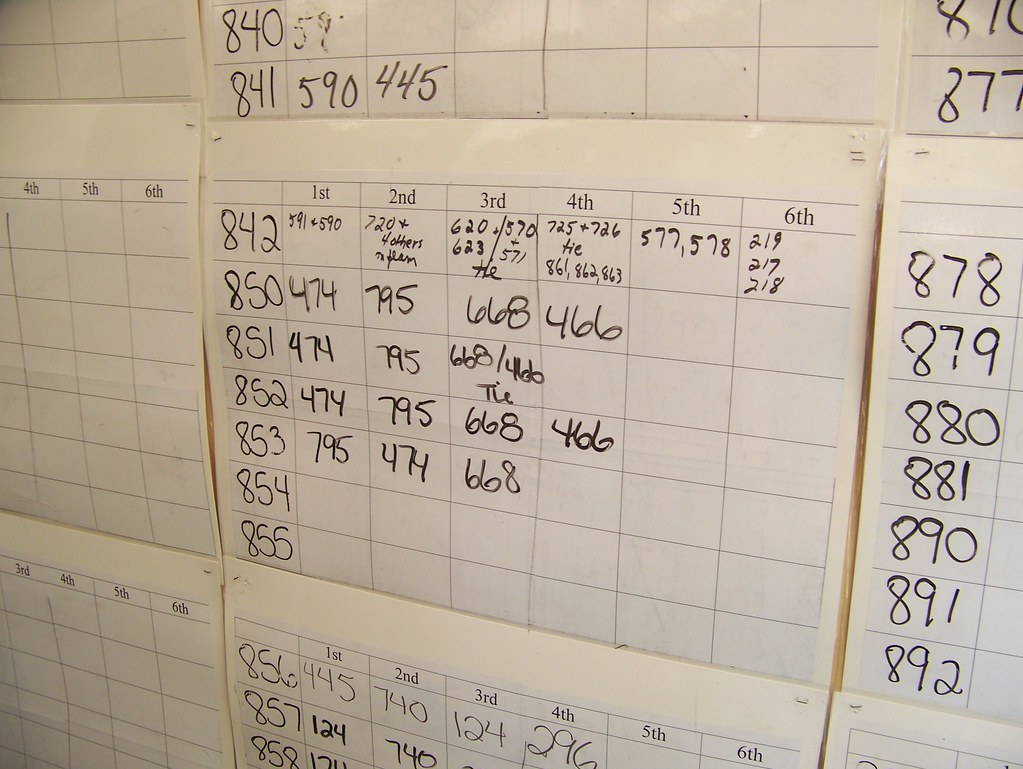 840 59
841 590 445
870
877
4th 5th 6th
1st 2nd 3rd 4th 5th 6th
842 591 + 590 720 + 4 others n team 620 + 623 / 570 + 571 tie 725 + 726 tie 861, 862, 863 577, 578 219 217 218
850 474 795 668 466
851 474 795 668/466 Tie
852 474 795 668 466
853 795 474 668
854
855
878
879
880
881
890
891
892
3rd 4th 5th 6th
1st 2nd 3rd 4th 5th 6th
856 445 740 124 296
857 124 740
858 124